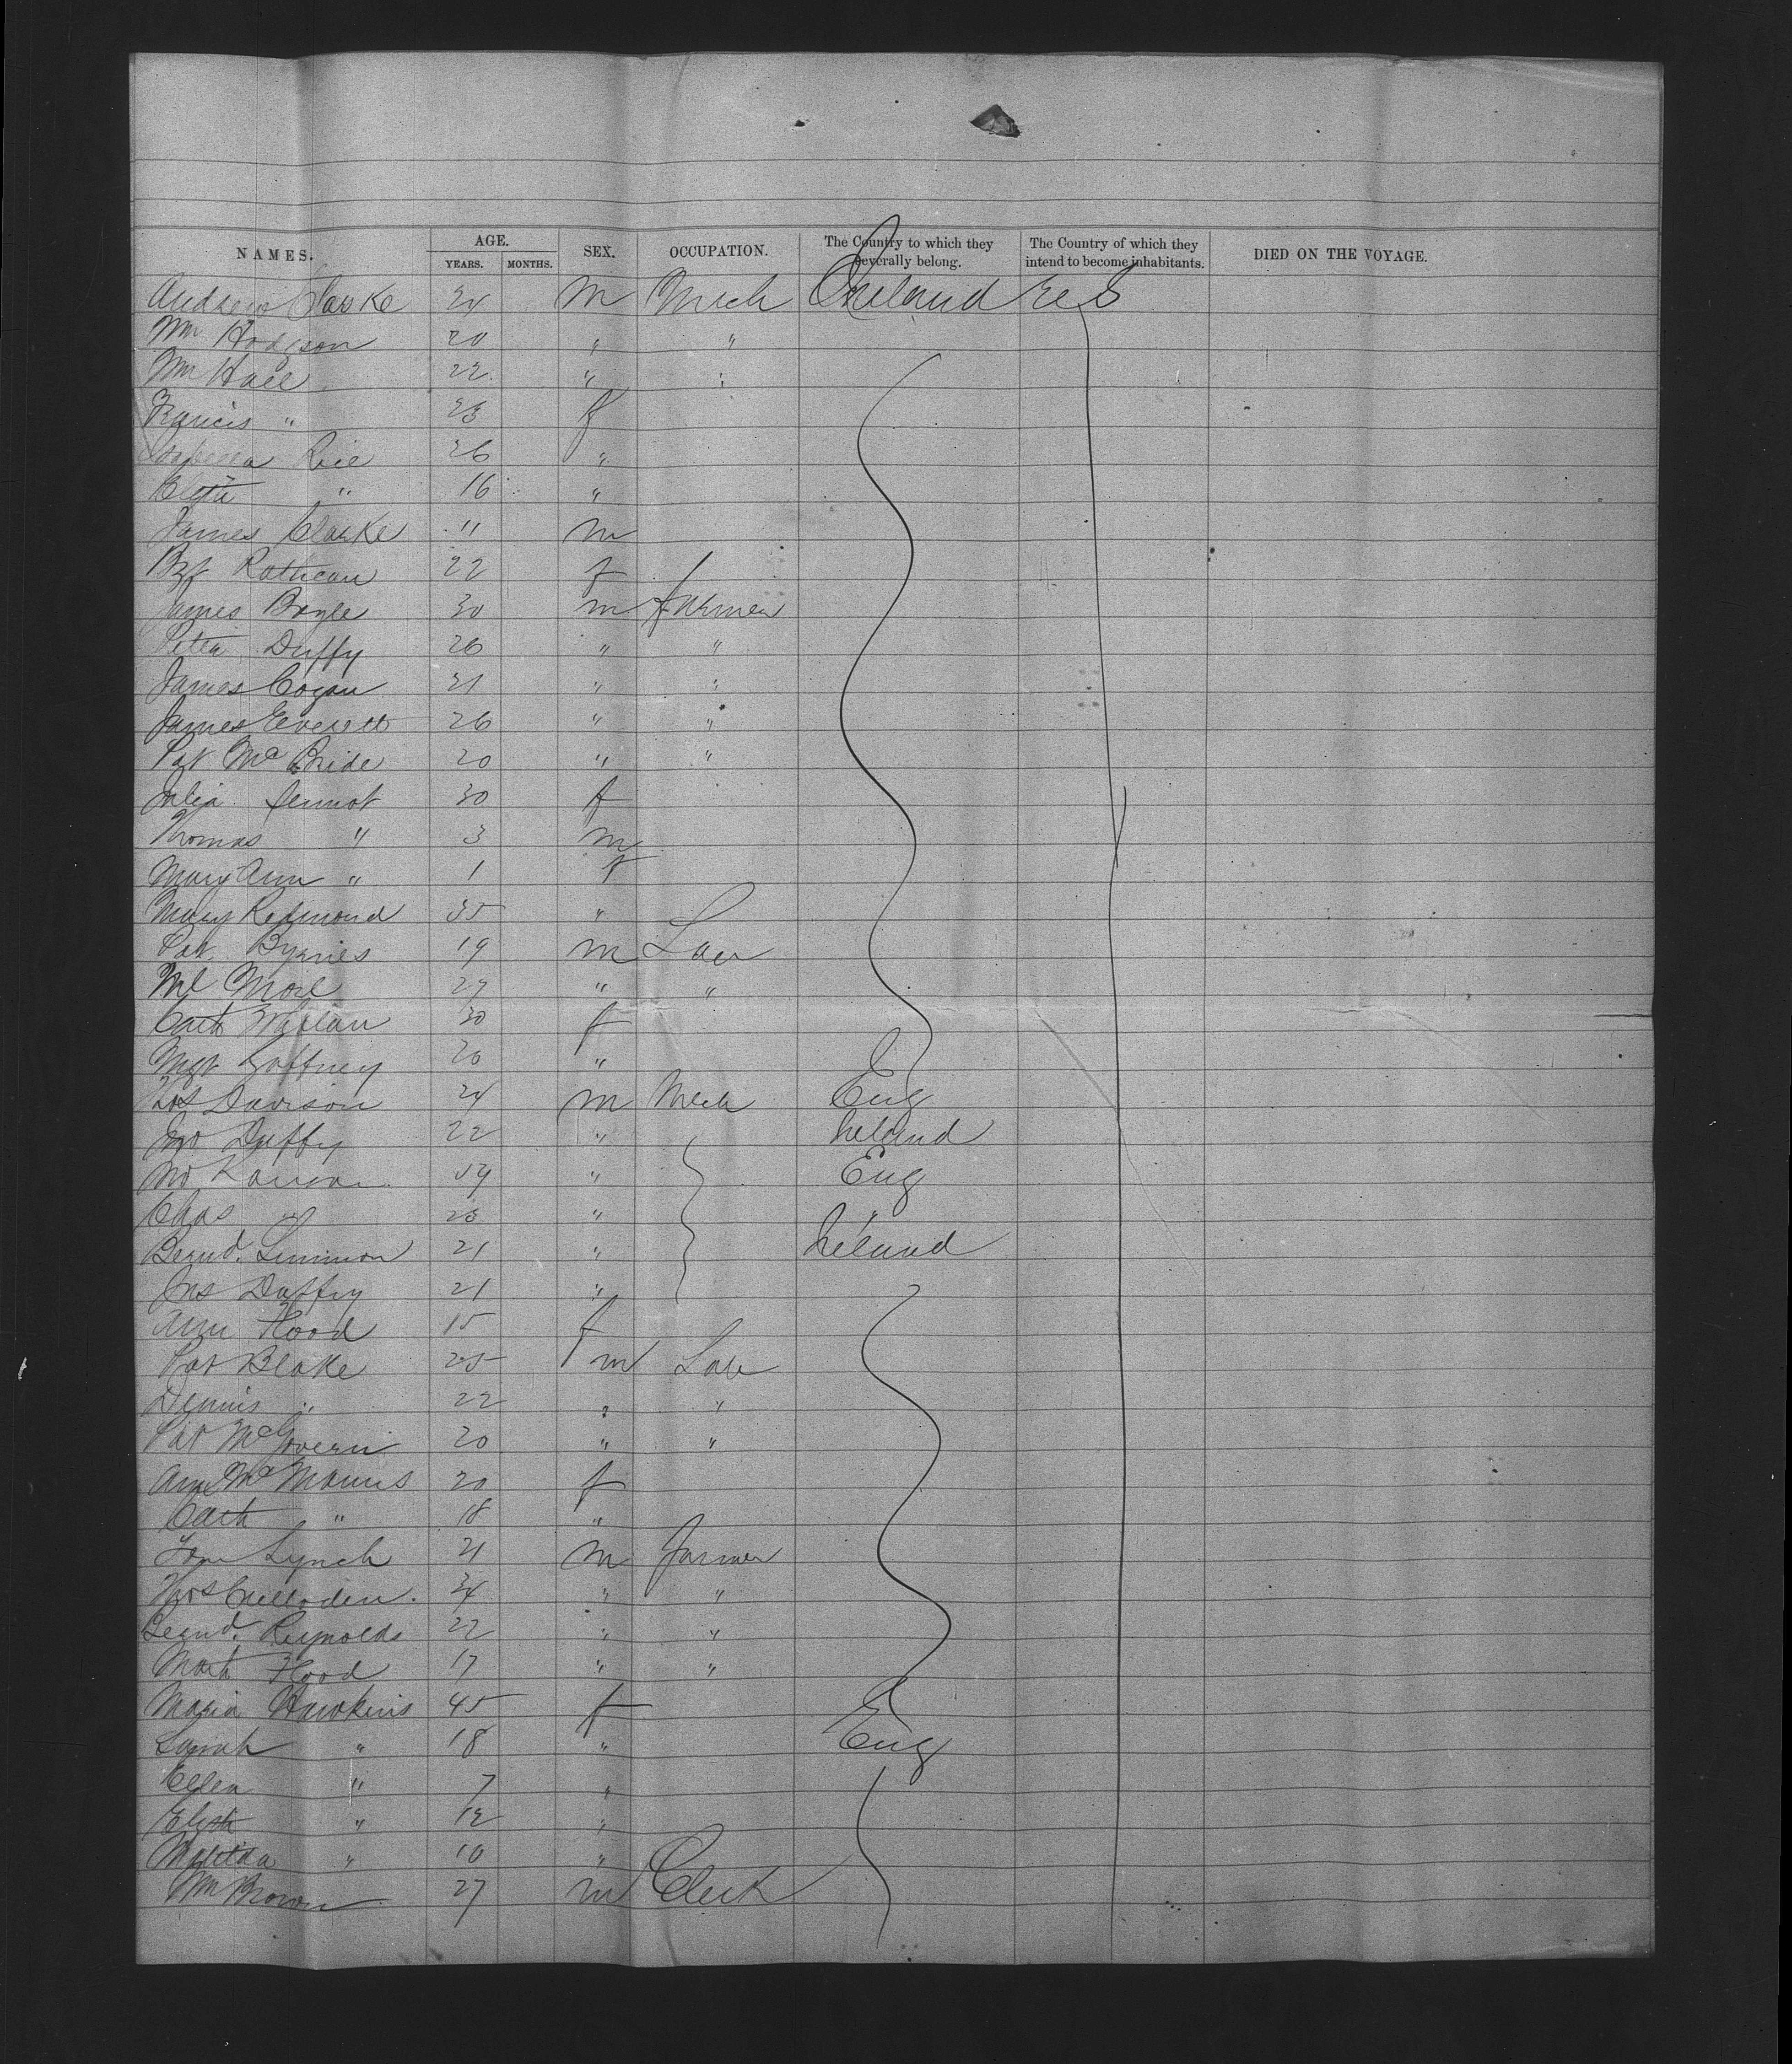 NAMES. AGE. YEARS. MONTHS. SEX. OCCUPATION. The Country to which they severally belong. The Country of which they intend to become inhabitants. DIED ON THE VOYAGE.
Andrew Clarke 24 M Mech Ireland U S
Wm Hodgson 20 " "
Wm Hall 22 " "
Francis " 23 f
Isabella Rice 26 "
Elizth " 16 "
James Clarke 11 m
22 f
James Boyle 30 m farmer
Peter Duffy 26 " "
James Cogan 21 " "
James Everett 26 " "
Pat McBride 20 " "
Julia 30 f
Thomas " 3 m
Mary Ann " 1 f
Mary Redmond 35 "
Pat Byrnes 19 m Lab
Ml More 27 " "
Cath 30 f
Mgt Gaffney 20 "
Thos Davison 24 m Mech Eng
Jno Duffy 22 " Ireland
Jno 59 " Eng
Chas " 23 " "
Bernd. Lennon 21 " Ireland
Jas Duffy 21 "
Ann Flood 15 f
Pat Blake 25 m Lab
Dennis " 22 " "
Pat McGovern 20 " "
Ann McManus 20 f
Cath " 18 "
Lynch 21 m farmer
Thos Culloden 34 " "
Bernd. Reynolds 22 " "
Math Flood 17 " "
Maria Hawkins 45 f
Sarah " 18 " Eng
Ellen " 7 "
Elizth " 12 "
Matilda " 10 "
Wm Brown 27 m Clerk